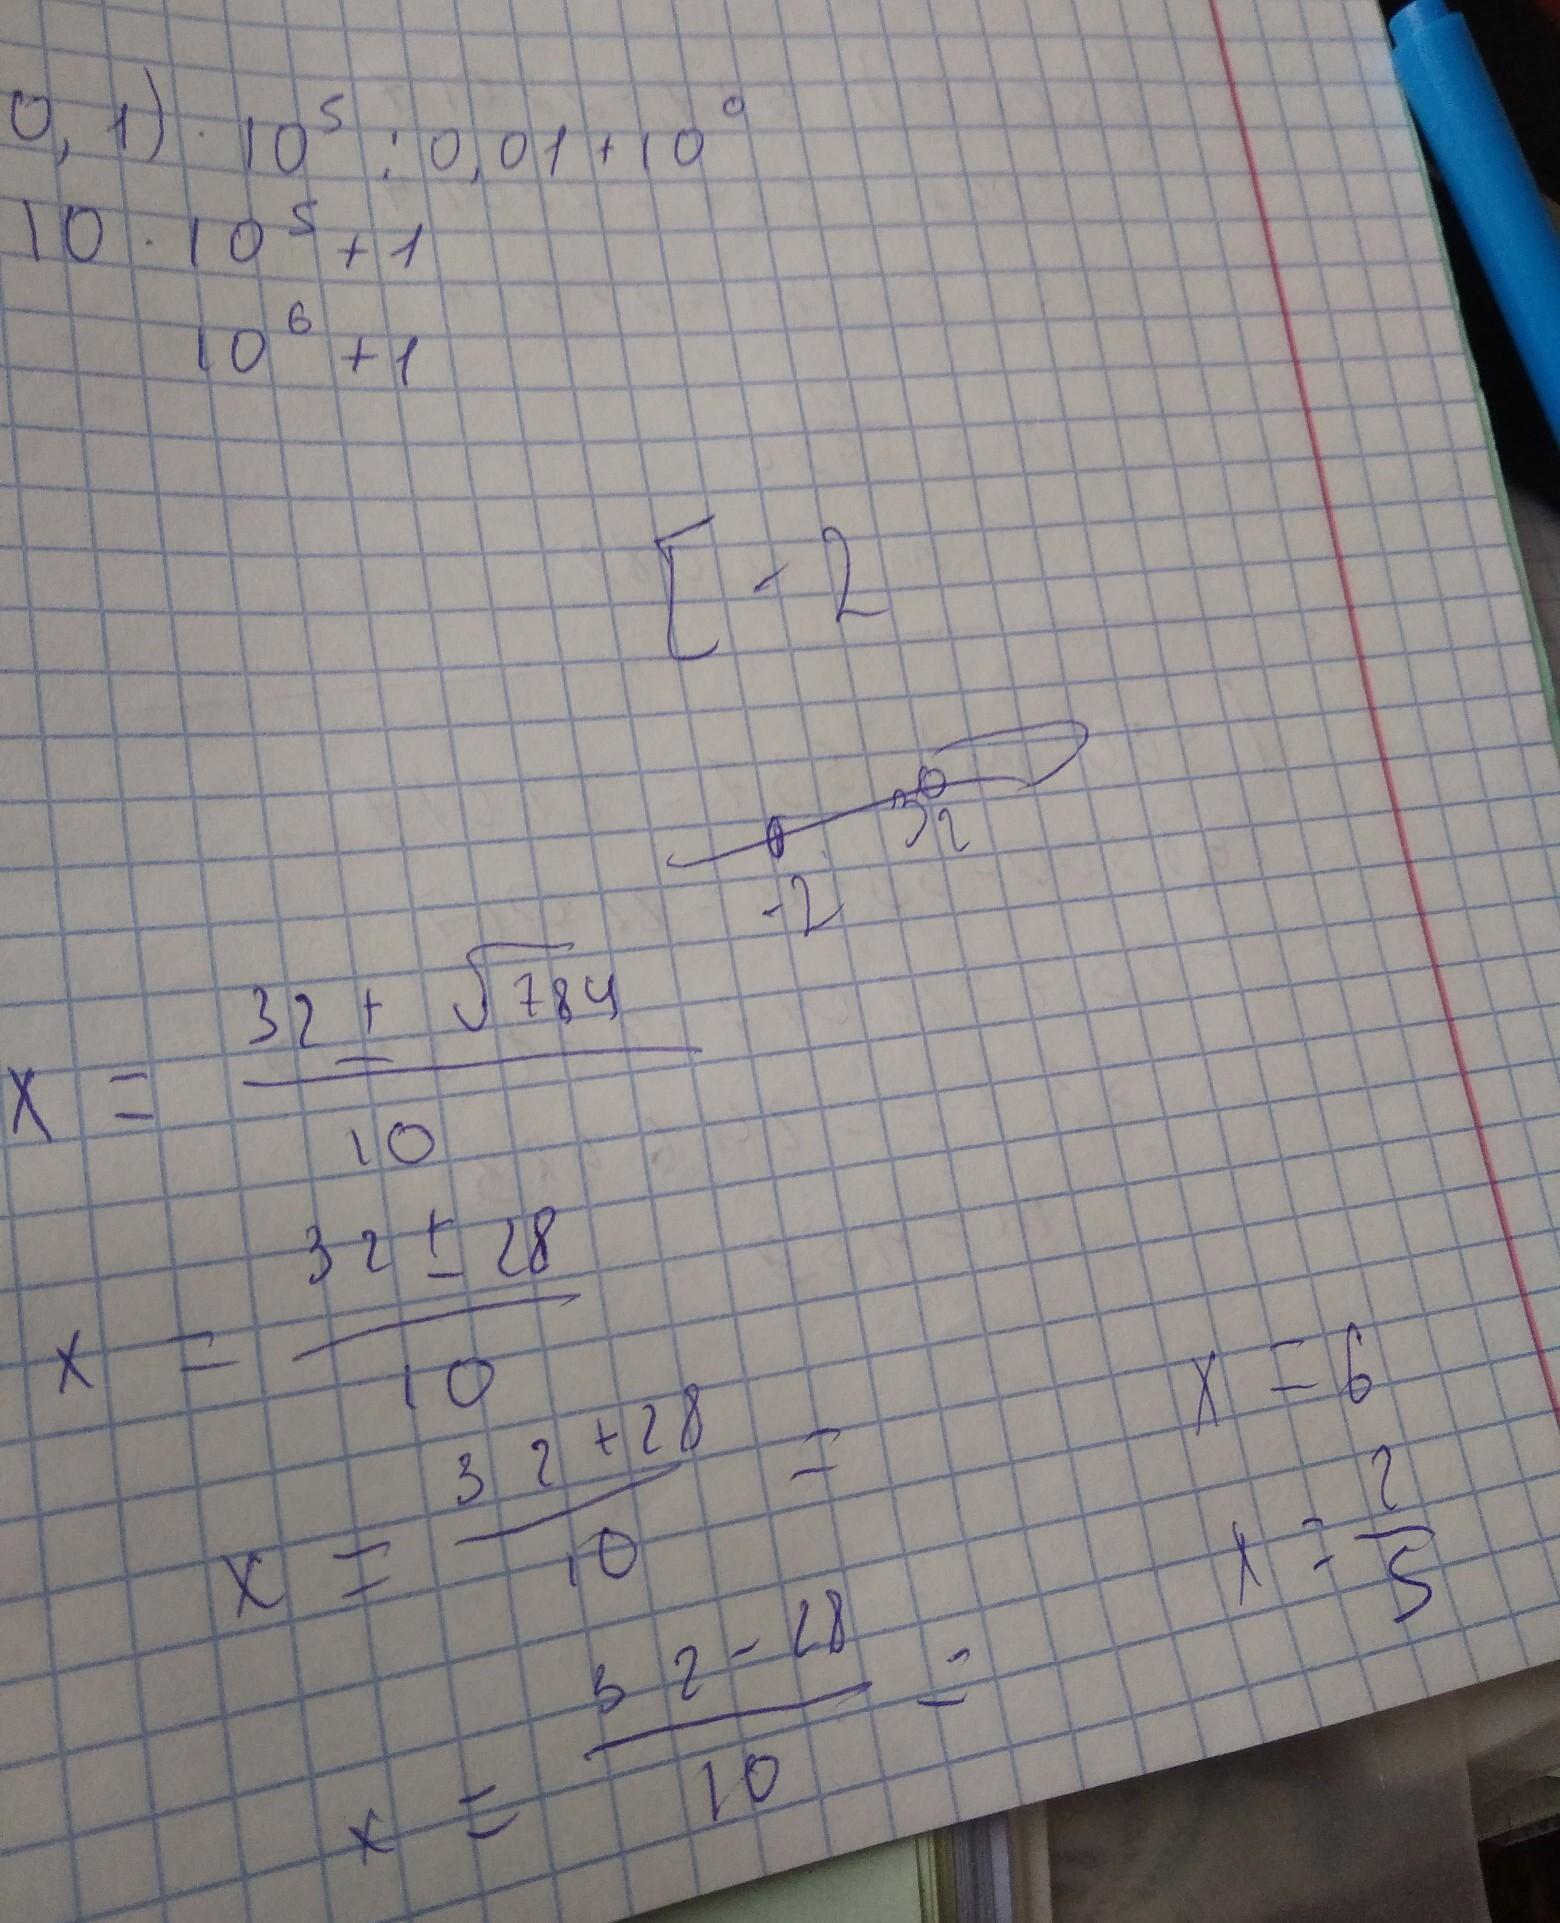 0,1) · 10⁵ : 0,01 + 10⁰
10 · 10⁵ + 1
10⁶ + 1
[ - 2
32
-2
x = (32 ± √784) / 10
x = (32 ± 28) / 10
x = (32 + 28) / 10 =
x = 6
x = 2/5
x = (32 - 28) / 10 =